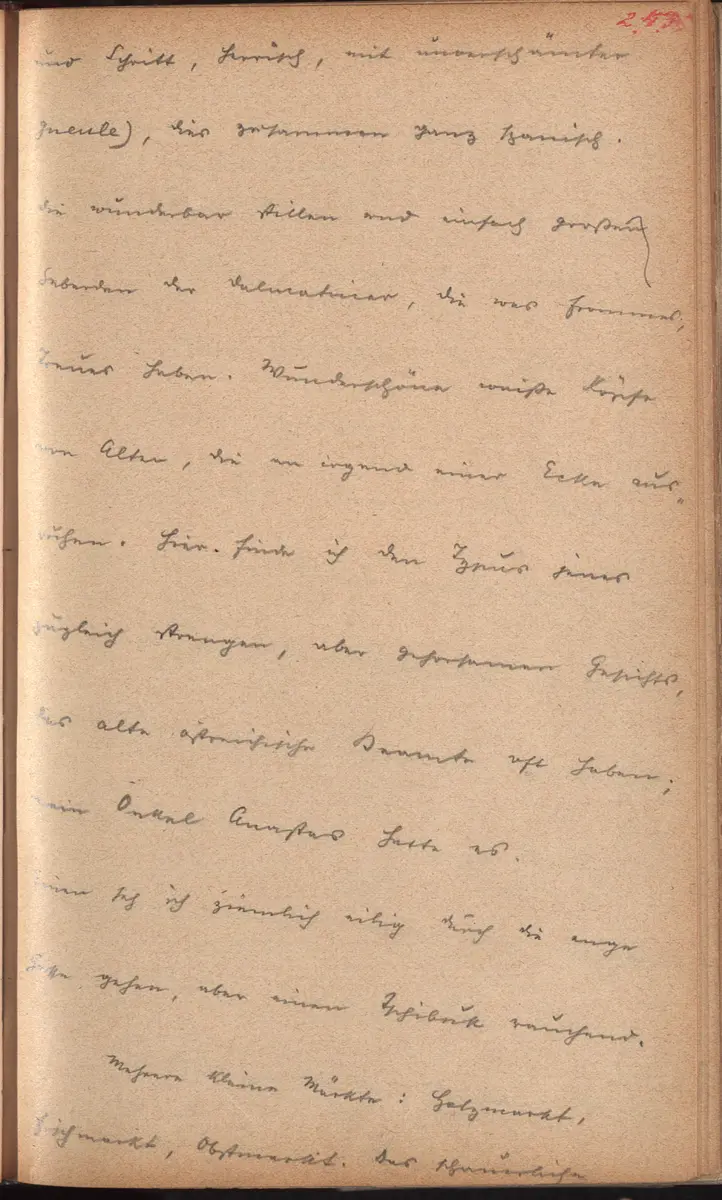 2.473
und Schritt, herrisch, mit unverschämter
gueule), dies zusammen ganz spanisch.
die wunderbar stillen und einfach großen
Geberden der Dalmatiner, die was frommes,
Treues haben. Wunderschöne weiße Köpfe
von Alten, die an irgend einer Ecke aus-
ruhen. Hier finde ich den Typus jenes
zugleich strengen, aber gehorsamen Gesichts,
das alte östreichische Beamte oft haben;
mein Onkel Anastas hatte es.
einen seh ich ziemlich eilig durch die enge
Gasse gehen, aber einen Tschibuk rauchend.
Mehrere kleine Märkte: Holzmarkt,
Fischmarkt, Obstmarkt. Das schauerliche